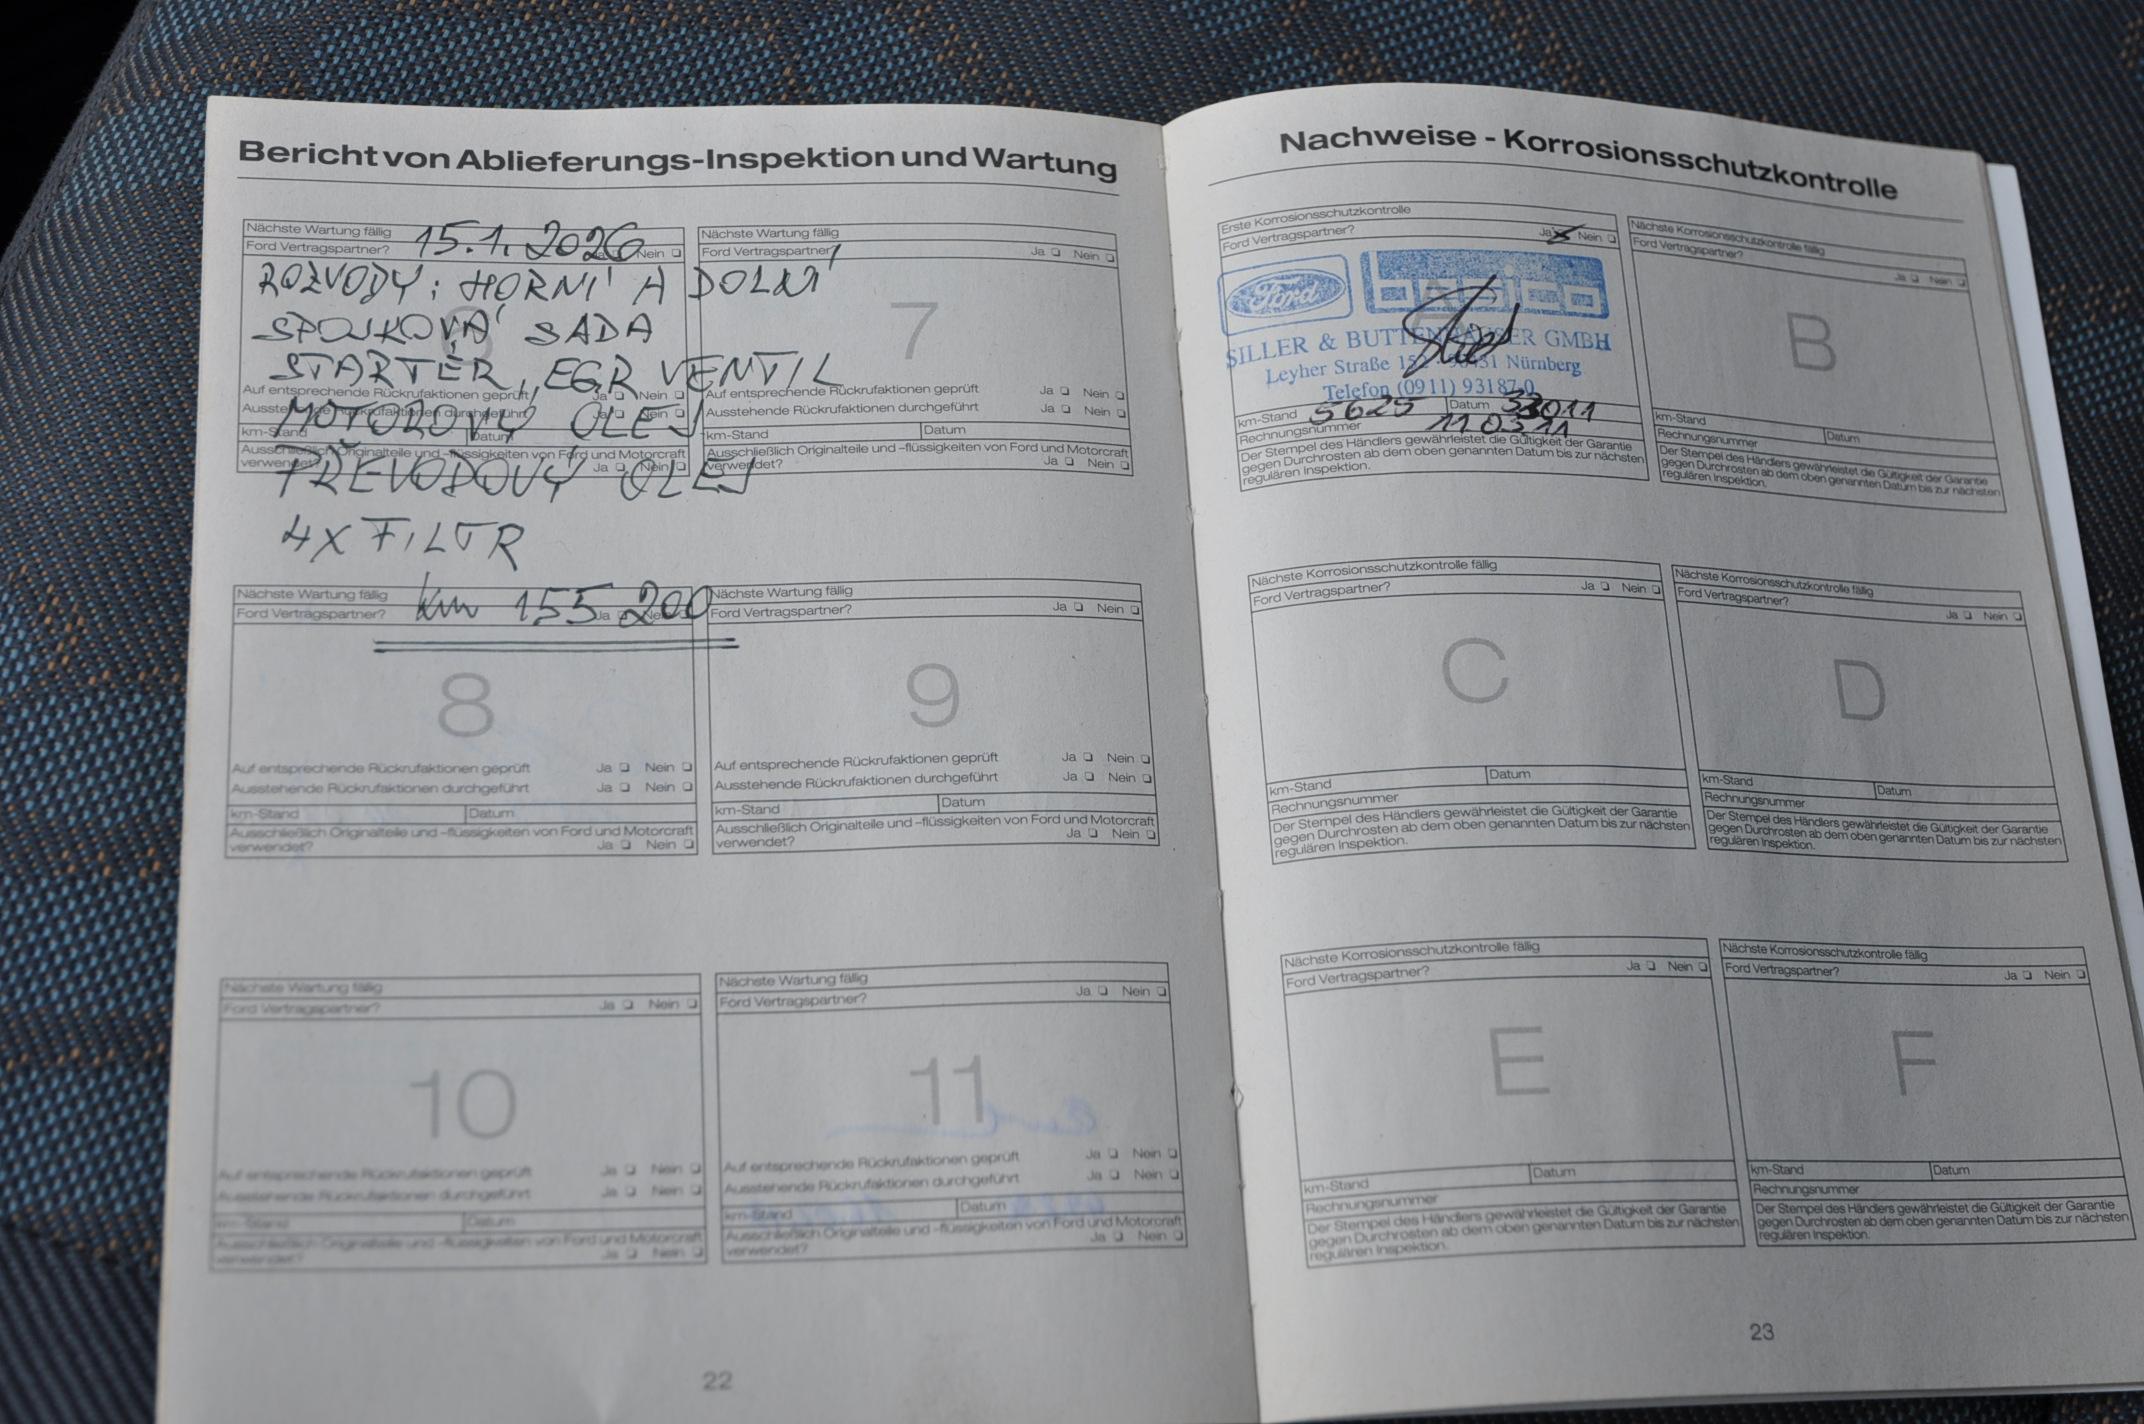 Bericht von Ablieferungs-Inspektion und Wartung
Nächste Wartung fällig
15.1.2026
Ford Vertragspartner? Ja Nein
ROZVODY: HORNÍ A DOLNÍ
SPOJKOVÁ SADA
STARTER, EGR VENTIL
Auf entsprechende Rückrufaktionen geprüft Ja Nein
MOTOROVÝ OLEJ
Ausstehende Rückrufaktionen durchgeführt Ja Nein
km-Stand Datum
Ausschließlich Originalteile und -flüssigkeiten von Ford und Motorcraft
verwendet? Ja Nein
PŘEVODOVÝ OLEJ
4X FILTR
km 155 200
Nächste Wartung fällig
Ford Vertragspartner? Ja Nein
7
Auf entsprechende Rückrufaktionen geprüft Ja Nein
Ausstehende Rückrufaktionen durchgeführt Ja Nein
km-Stand Datum
Ausschließlich Originalteile und -flüssigkeiten von Ford und Motorcraft
verwendet? Ja Nein
Nächste Wartung fällig
Ford Vertragspartner? Ja Nein
8
Auf entsprechende Rückrufaktionen geprüft Ja Nein
Ausstehende Rückrufaktionen durchgeführt Ja Nein
km-Stand Datum
Ausschließlich Originalteile und -flüssigkeiten von Ford und Motorcraft
verwendet? Ja Nein
Nächste Wartung fällig
Ford Vertragspartner? Ja Nein
9
Auf entsprechende Rückrufaktionen geprüft Ja Nein
Ausstehende Rückrufaktionen durchgeführt Ja Nein
km-Stand Datum
Ausschließlich Originalteile und -flüssigkeiten von Ford und Motorcraft
verwendet? Ja Nein
Nächste Wartung fällig
Ford Vertragspartner? Ja Nein
10
Auf entsprechende Rückrufaktionen geprüft Ja Nein
Ausstehende Rückrufaktionen durchgeführt Ja Nein
km-Stand Datum
Ausschließlich Originalteile und -flüssigkeiten von Ford und Motorcraft
verwendet? Ja Nein
Nächste Wartung fällig
Ford Vertragspartner? Ja Nein
11
Auf entsprechende Rückrufaktionen geprüft Ja Nein
Ausstehende Rückrufaktionen durchgeführt Ja Nein
km-Stand Datum
Ausschließlich Originalteile und -flüssigkeiten von Ford und Motorcraft
verwendet? Ja Nein
22
Nachweise - Korrosionsschutzkontrolle
Erste Korrosionsschutzkontrolle
Ford Vertragspartner? Ja Nein
Ford basica
SILLER & GMBH
Leyher Straße Nürnberg
Telefon (0911) 93187-0
km-Stand 5625 Datum
Rechnungsnummer
Der Stempel des Händlers gewährleistet die Gültigkeit der Garantie
gegen Durchrosten ab dem oben genannten Datum bis zur nächsten
regulären Inspektion.
Nächste Korrosionsschutzkontrolle fällig
Ford Vertragspartner?
Ja Nein
B
km-Stand Datum
Rechnungsnummer
Der Stempel des Händlers gewährleistet die Gültigkeit der Garantie
gegen Durchrosten ab dem oben genannten Datum bis zur nächsten
regulären Inspektion.
Nächste Korrosionsschutzkontrolle fällig
Ford Vertragspartner? Ja Nein
C
km-Stand Datum
Rechnungsnummer
Der Stempel des Händlers gewährleistet die Gültigkeit der Garantie
gegen Durchrosten ab dem oben genannten Datum bis zur nächsten
regulären Inspektion.
Nächste Korrosionsschutzkontrolle fällig
Ford Vertragspartner?
Ja Nein
D
km-Stand Datum
Rechnungsnummer
Der Stempel des Händlers gewährleistet die Gültigkeit der Garantie
gegen Durchrosten ab dem oben genannten Datum bis zur nächsten
regulären Inspektion.
Nächste Korrosionsschutzkontrolle fällig
Ford Vertragspartner? Ja Nein
E
km-Stand Datum
Rechnungsnummer
Der Stempel des Händlers gewährleistet die Gültigkeit der Garantie
gegen Durchrosten ab dem oben genannten Datum bis zur nächsten
regulären Inspektion.
Nächste Korrosionsschutzkontrolle fällig
Ford Vertragspartner? Ja Nein
F
km-Stand Datum
Rechnungsnummer
Der Stempel des Händlers gewährleistet die Gültigkeit der Garantie
gegen Durchrosten ab dem oben genannten Datum bis zur nächsten
regulären Inspektion.
23